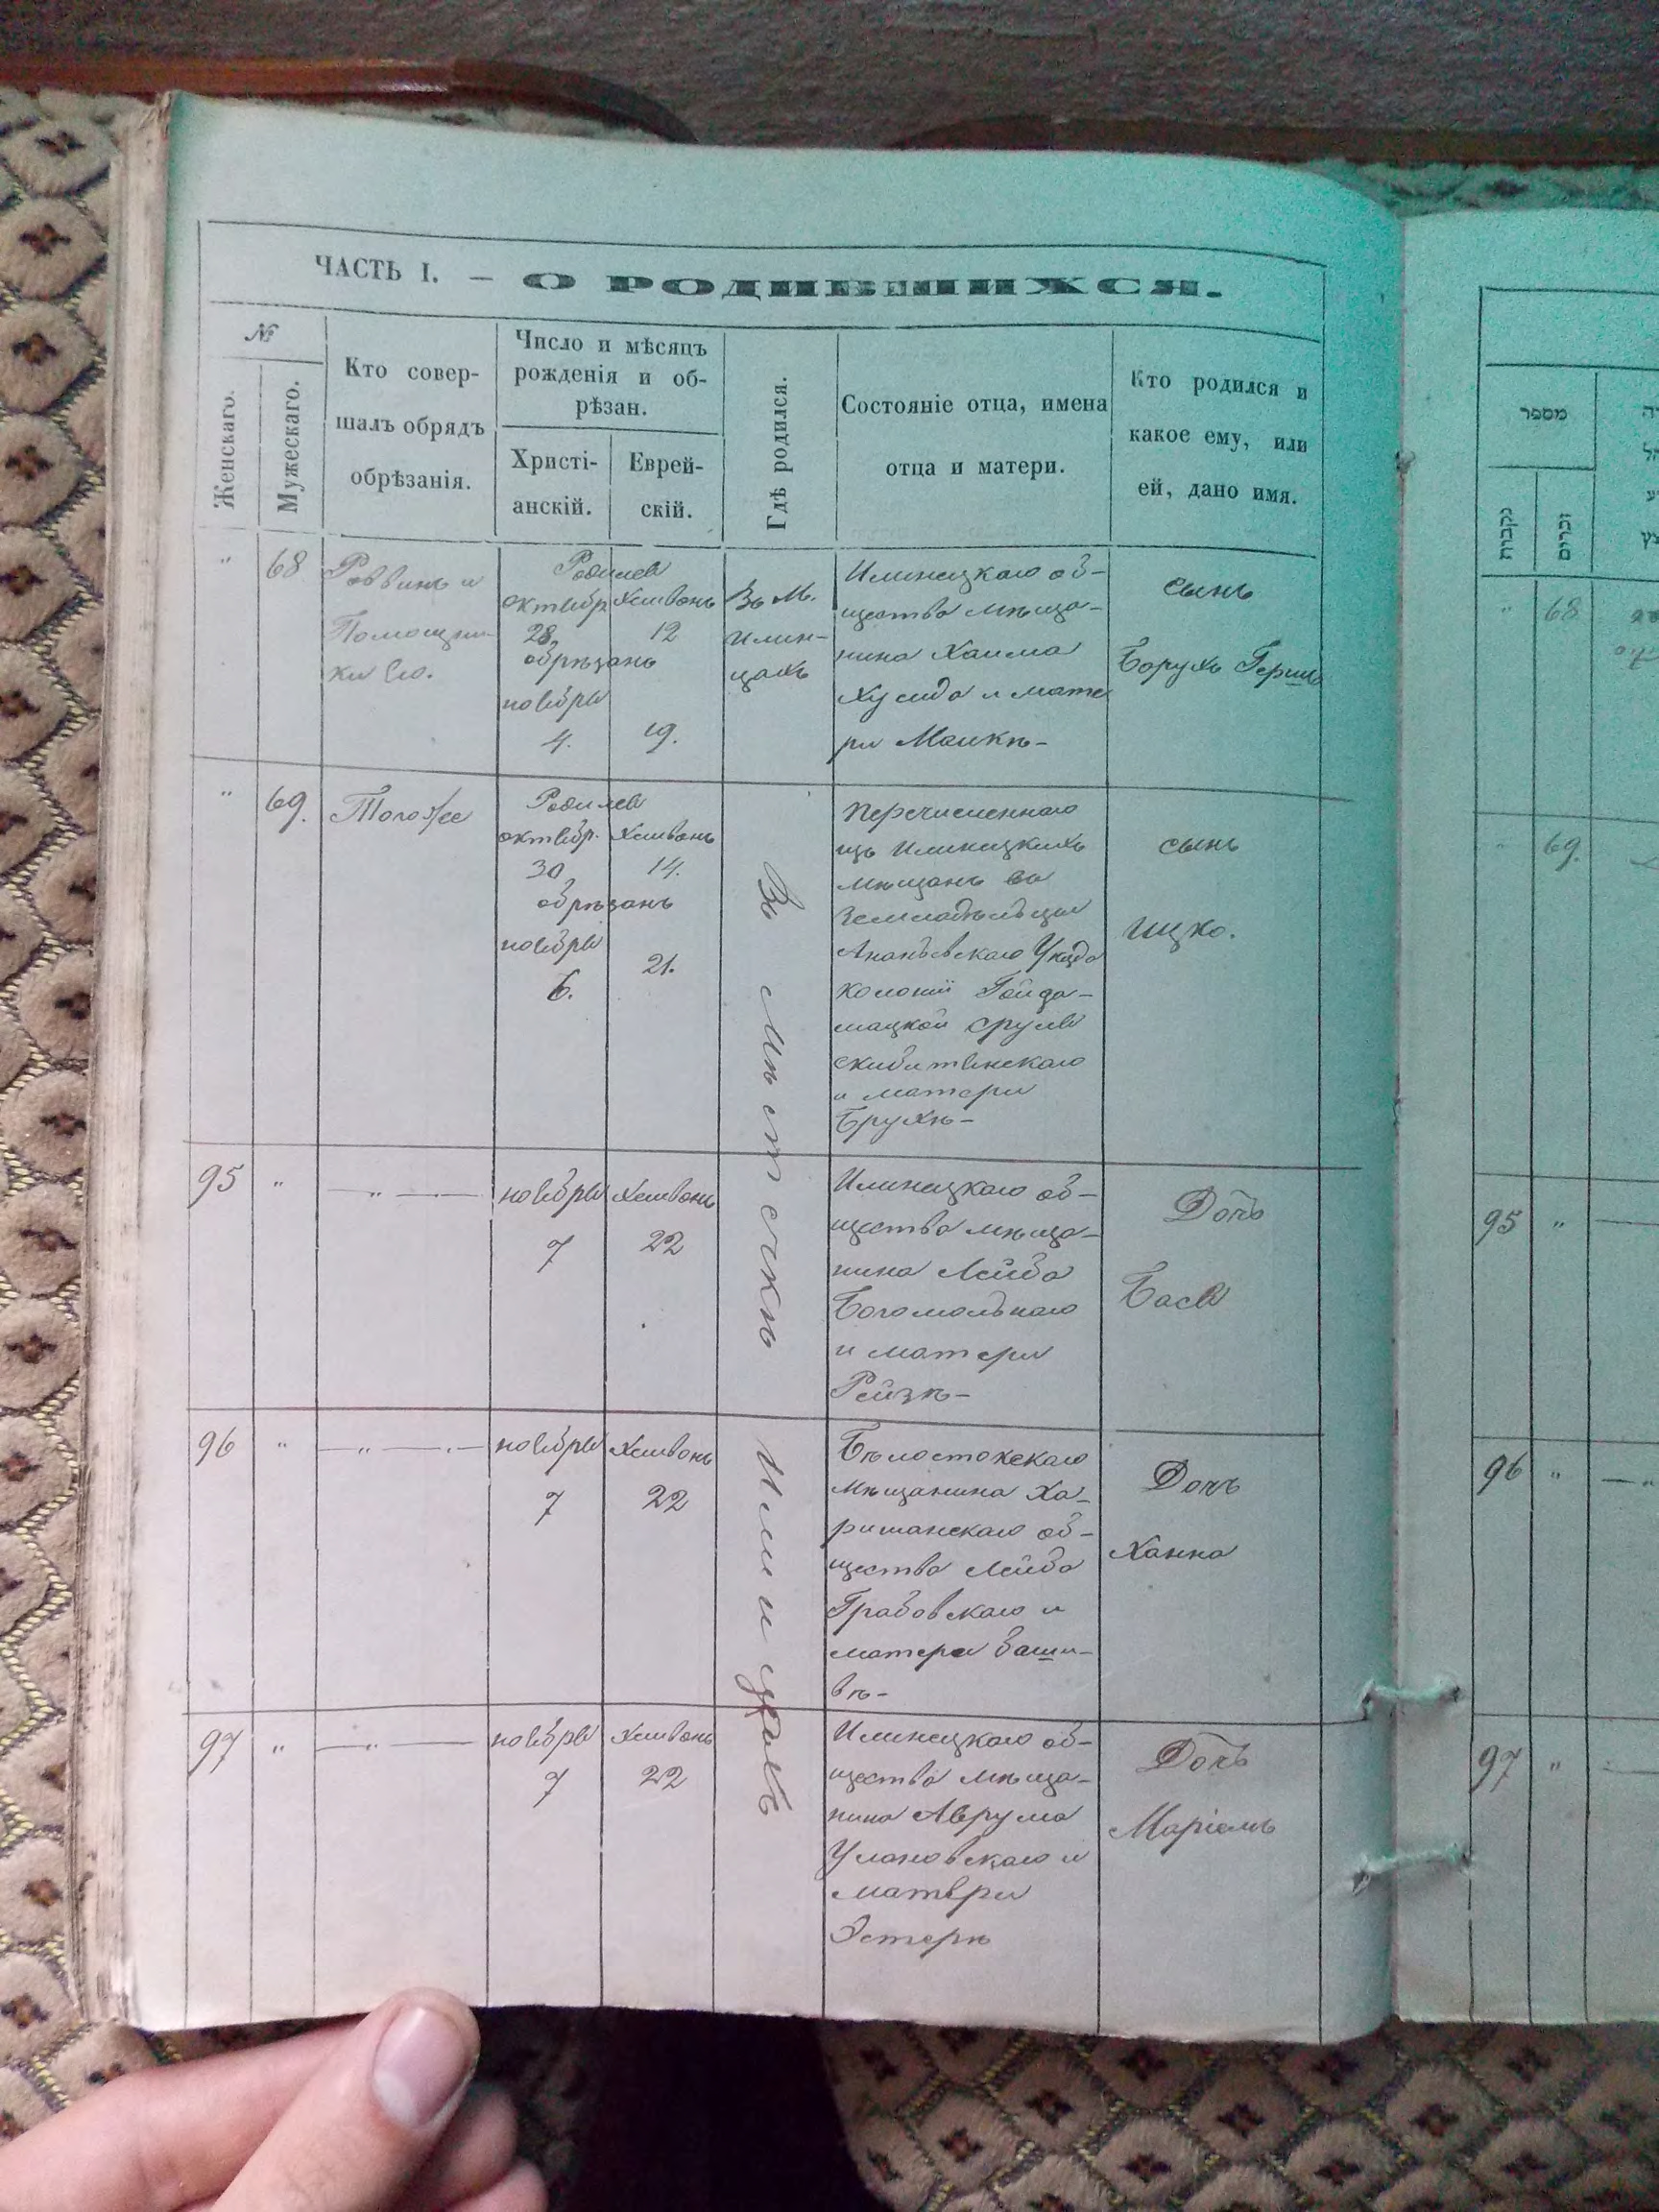 ЧАСТЬ I. — О РОДИВШИХСЯ.
№
Женскаго.
Мужескаго.
Кто совер-
шалъ обрядъ
обрѣзанія.
Число и мѣсяцъ
рожденія и об-
рѣзан.
Христі-
анскій.
Еврей-
скій.
Гдѣ родился.
Состояніе отца, имена
отца и матери.
Кто родился и
какое ему, или
ей, дано имя.
" 68
Раввинъ и
Помощни-
ки его.
Родился
октября Хешвонъ
28 12
обрѣзанъ
ноября
4. 19.
Въ М.
Илин-
цахъ
Илинецкаго об-
щества мѣща-
нина Хаима
и мате
ри Малкѣ-
сынъ
Борухъ Гершъ
" 69.
Тогоже
Родился
октябр. Хешвонъ
30 14.
обрѣзанъ
ноября
6. 21.
Въ мѣстечкѣ Илинцахъ
Перечисленнаго
изъ Илинецкихъ
мѣщанъ во
Земледѣльцы
Ананьевскаго Уѣзда
колоніи Гайда-
мацкой Сруля
Скибитянскаго
и матери
Брухѣ-
сынъ
Ицко.
95 " — " — —
ноября Хешвонъ
7 22
Илинецкаго об-
щества мѣща-
нина Лейба
Богомольнаго
и матери
Рейзѣ-
Дочь
Бася
96 " — " — —
ноября Хешвонъ
7 22
Бѣлостокскаго
Мѣщанина Ха-
рошанскаго об-
щества Лейба
Грабовскаго и
матери Баши-
вѣ-
Дочь
Ханна
97 " — " —
ноября Хешвонъ
7 22
Илинецкаго об-
щества мѣща-
нина Аврума
Улановскаго и
матери
Эстерѣ
Дочь
Маріемъ
מספר
נקבות
זכרים
" 68
" 69.
95 "
96 "
97 "